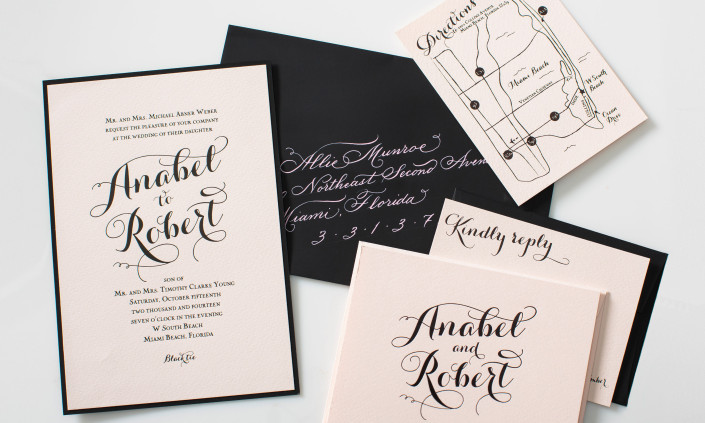 Mr. and Mrs. Michael Abner Weber
request the pleasure of your company
at the wedding of their daughter
Anabel
to
Robert
son of
Mr. and Mrs. Timothy Clarke Young
Saturday, October fifteenth
two thousand and fourteen
seven o'clock in the evening
W South Beach
Miami Beach, Florida
Black tie
Allie Munroe
Northeast Second Avenue
Miami, Florida
3·3·1·3·7
Directions
Miami Beach, Florida
Miami Beach
Venetian Causeway
W South
Beach
Kindly reply
Anabel
and
Robert